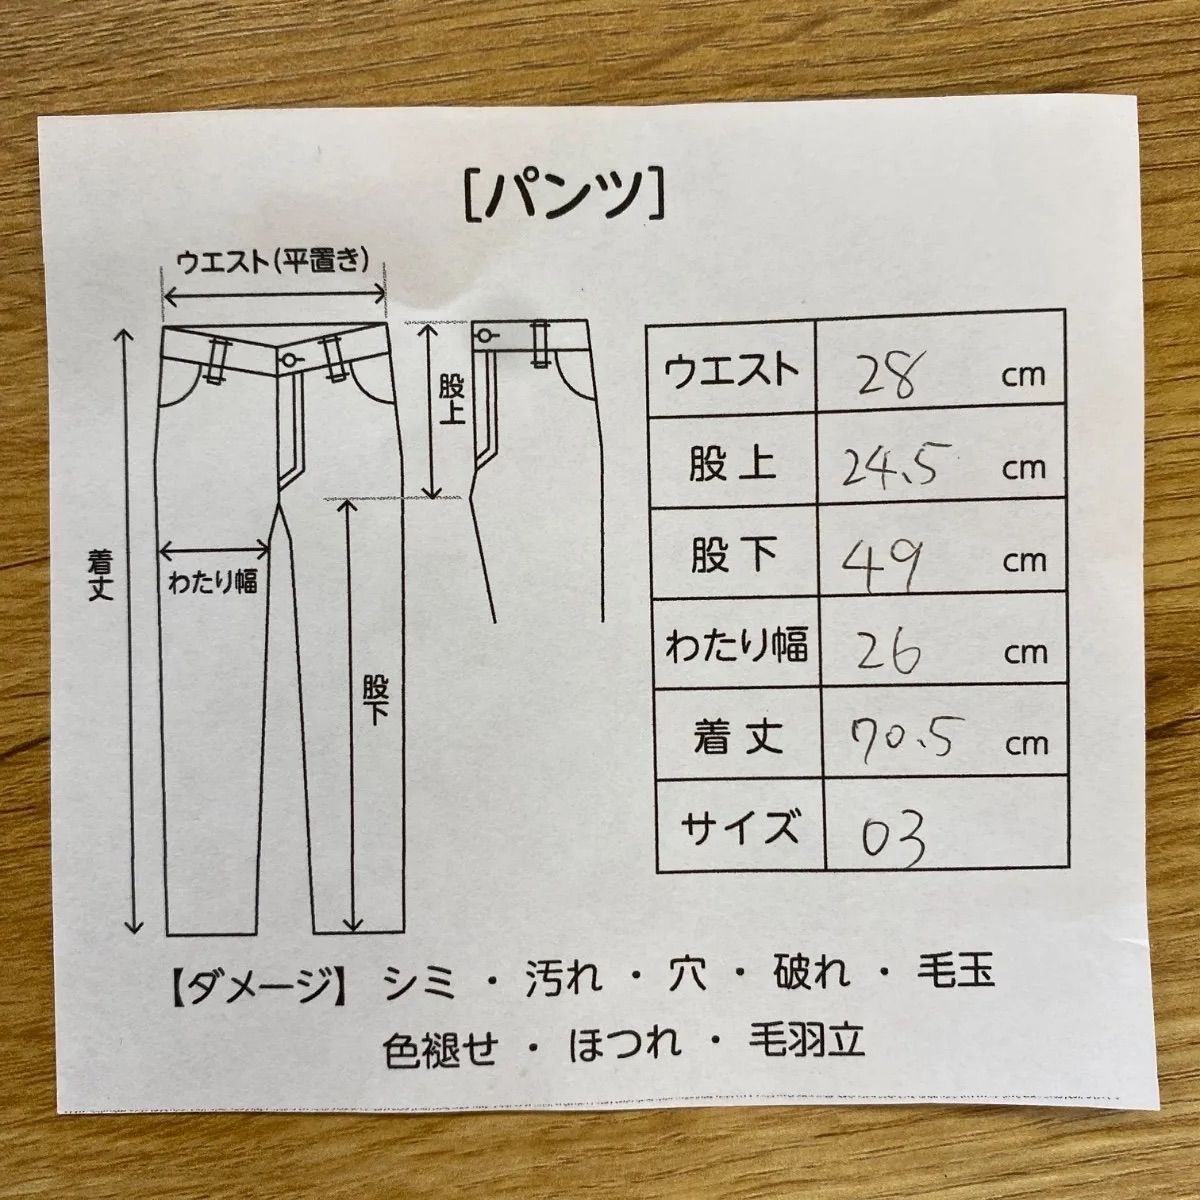 [パンツ]
ウエスト(平置き)
股上
着丈
わたり幅
股下
ウエスト 28 cm
股上 24.5 cm
股下 49 cm
わたり幅 26 cm
着丈 70.5 cm
サイズ 03
【ダメージ】 シミ ・ 汚れ ・ 穴 ・ 破れ ・ 毛玉
色褪せ ・ ほつれ ・ 毛羽立